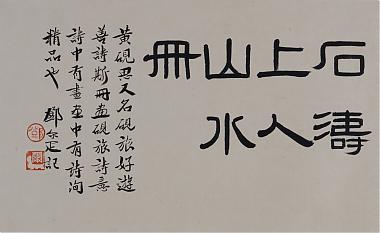 石濤
上人
山水
冊
黃硯思又名硯旅好遊
善詩斯冊畫硯旅詩意
詩中有畫畫中有詩洵
精品也 鄧尔疋記